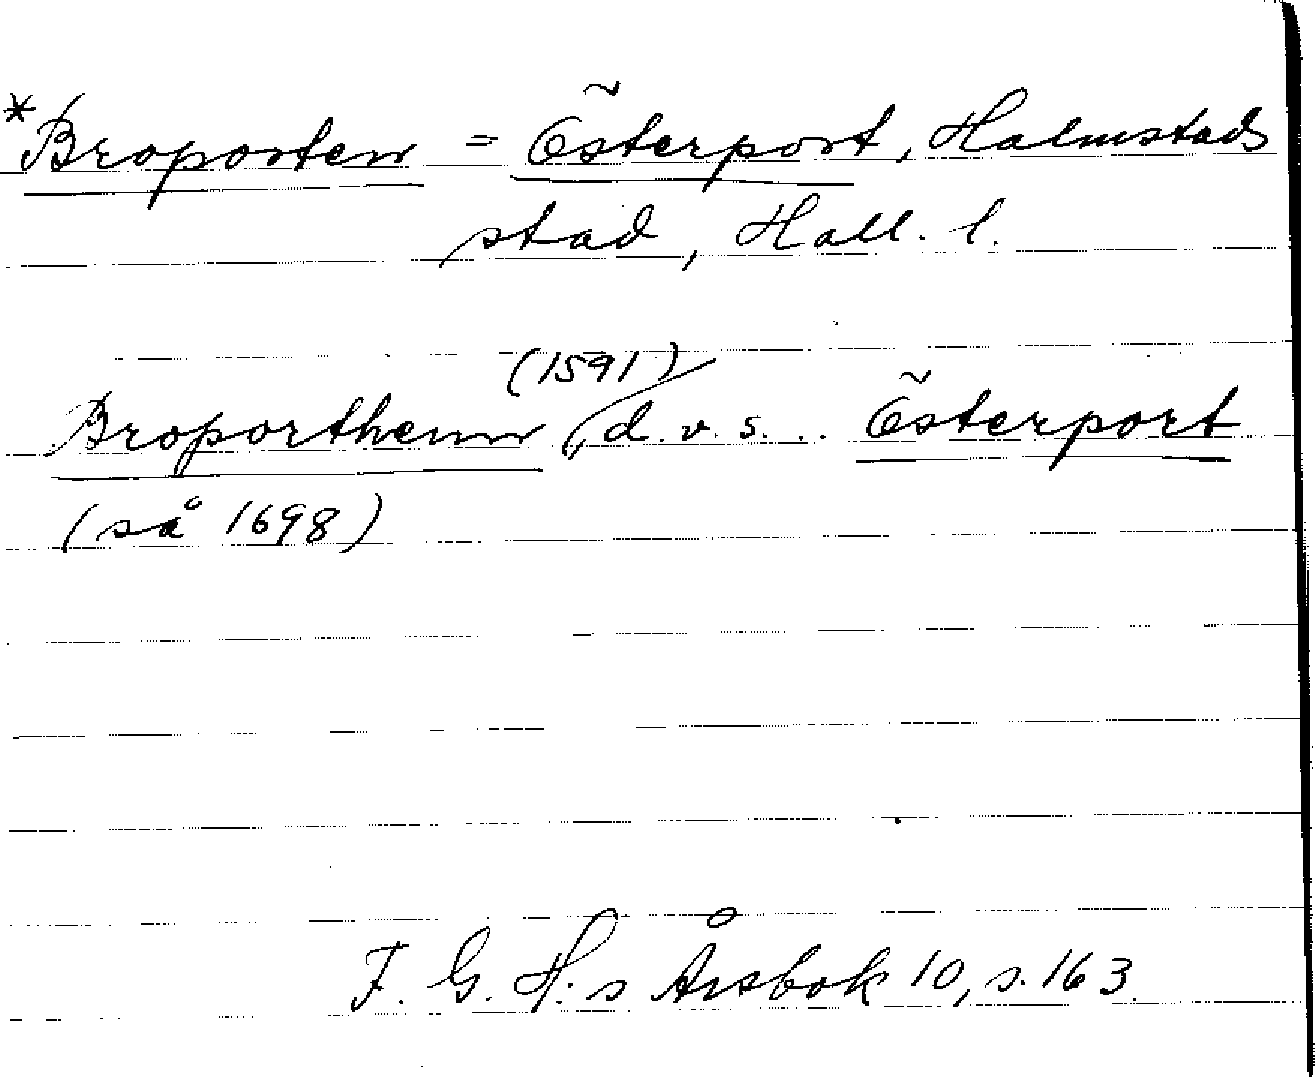 *Broporten = Österport, Halmstads
stad, Hall. l.
Broporthenn (1591), d.v.s... Österport
(så 1698)
F. G. H:s Årsbok 10, s. 163.